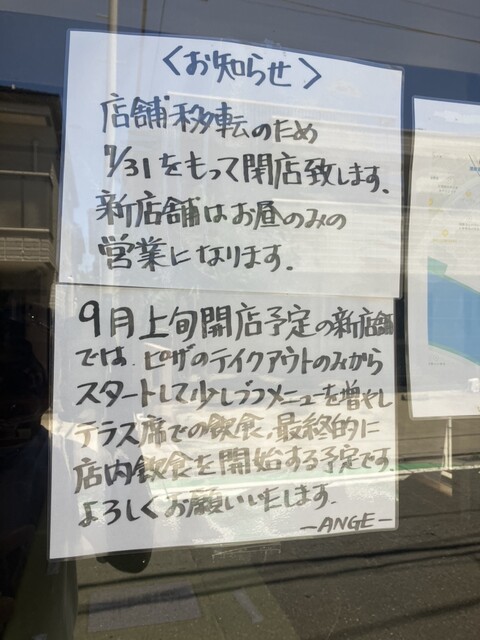 <お知らせ>
店舗移転のため
7/31をもって閉店致します。
新店舗はお昼のみの
営業になります。
9月上旬開店予定の新店舗
では、ピザのテイクアウトのみから
スタートして少しづつメニューを増やし
テラス席での飲食、最終的に
店内飲食を開始する予定です。
よろしくお願いいたします。
-ANGE-